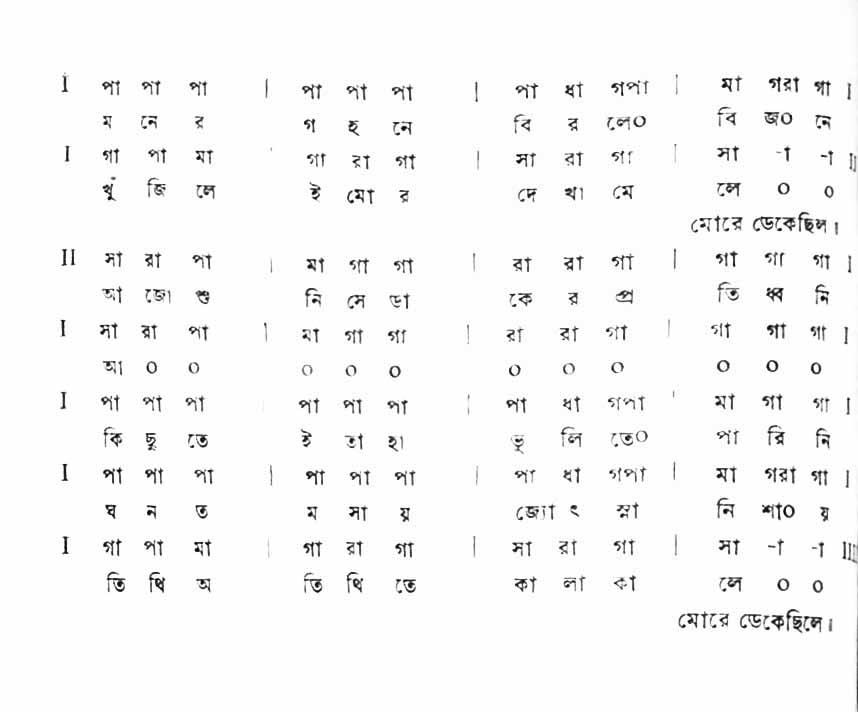 I পা পা পা | পা পা পা | পা ধা গপা | মা গরা গা I
ম নে র গ হ নে বি র লে০ বি জ০ নে
I গা পা মা ' গা রা গা | সা রা গা | সা -া -া II
খুঁ জি লে ই মো র দে খা মে লে ০ ০
মোরে ডেকেছিল।
II সা রা পা | মা গা গা | রা রা গা | গা গা গা I
আ জো শু নি সে ডা কে র প্র তি ধ্ব নি
I সা রা পা | মা গা গা | রা রা গা | গা গা গা I
আ ০ ০ ০ ০ ০ ০ ০ ০ ০ ০ ০
I পা পা পা | পা পা পা | পা ধা গপা ' মা গা গা I
কি ছু তে ই তা হা ভু লি তে০ পা রি নি
I পা পা পা | পা পা পা | পা ধা গপা | মা গরা গা I
ঘ ন ত ম সা য় জ্যো ৎ স্না নি শা০ য়
I গা পা মা | গা রা গা | সা রা গা | সা -া -া IIII
তি থি অ তি থি তে কা লা কা লে ০ ০
মোরে ডেকেছিলে।